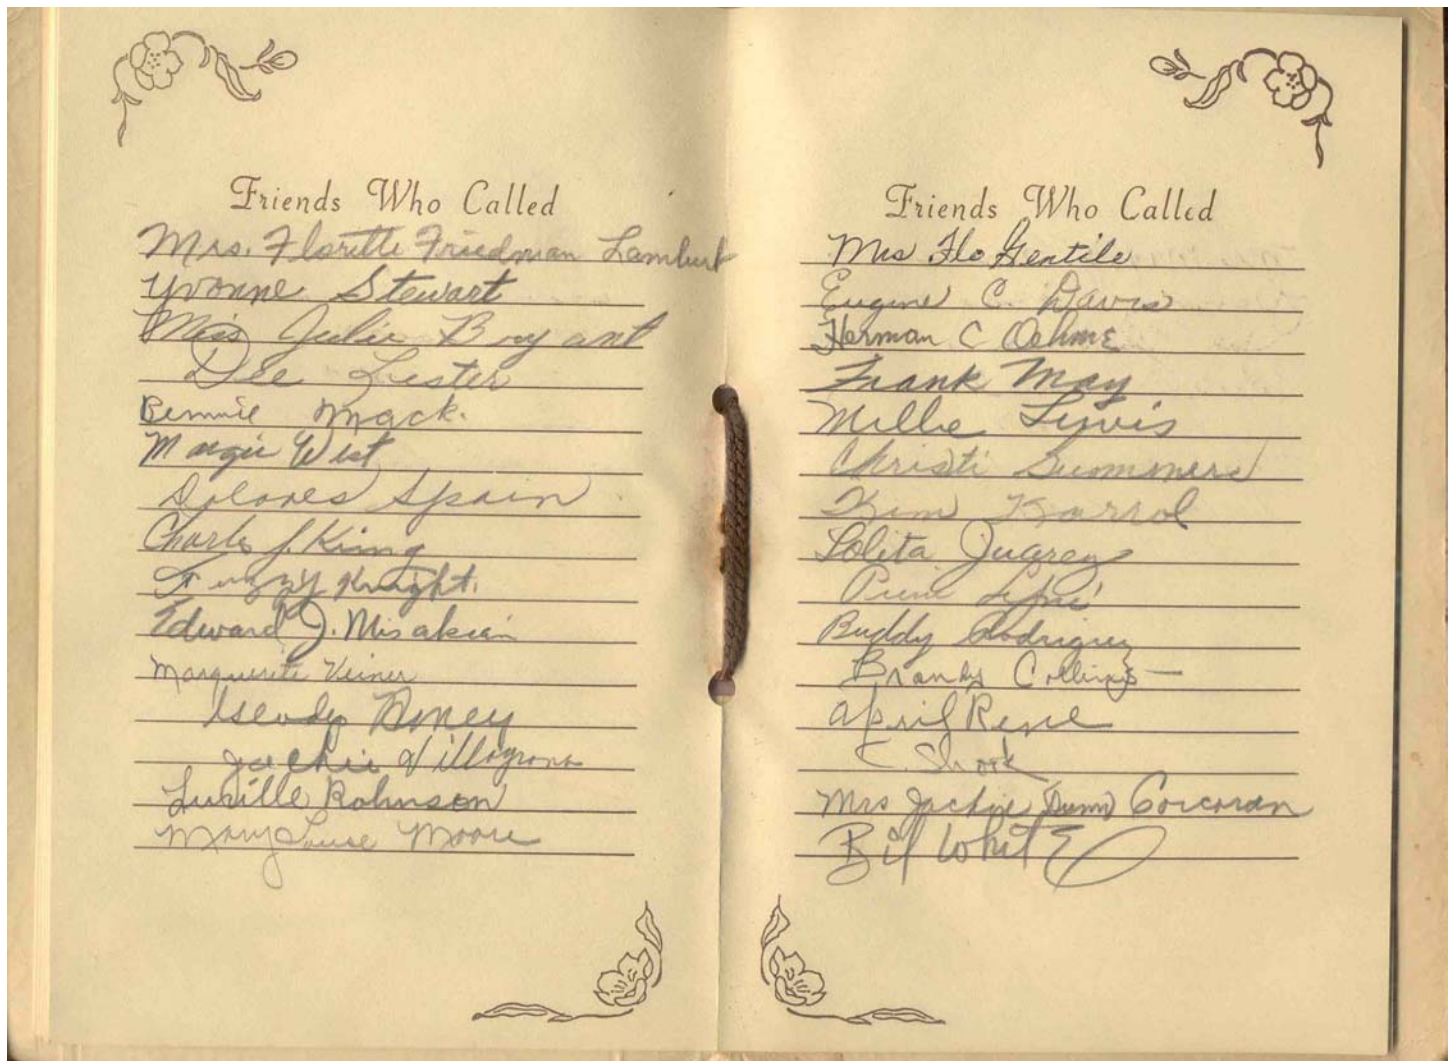 Friends Who Called
Mrs. Florette Friedman Lambert
Yvonne Stewart
Miss Julie Bryant
Dee Lester
Bennie Mack.
Margie West
Dolores Spain
Charles J. King
Fuzzy Knight.
Edward J. Misakian
Marguerite
Jackie Villagrana
Lucille Robinson
Mary Louise Moore
Friends Who Called
Mrs Flo Gentile
Eugene C. Davis
Herman C Oehme
Frank May
Millie Lewis
Christi Summers
Kim Karrol
Lolita Juarez
Buddy Rodriguez
Brandy Collins
April Rene
C. Shork
Mrs Jackie Dunn Corcoran
Bill White